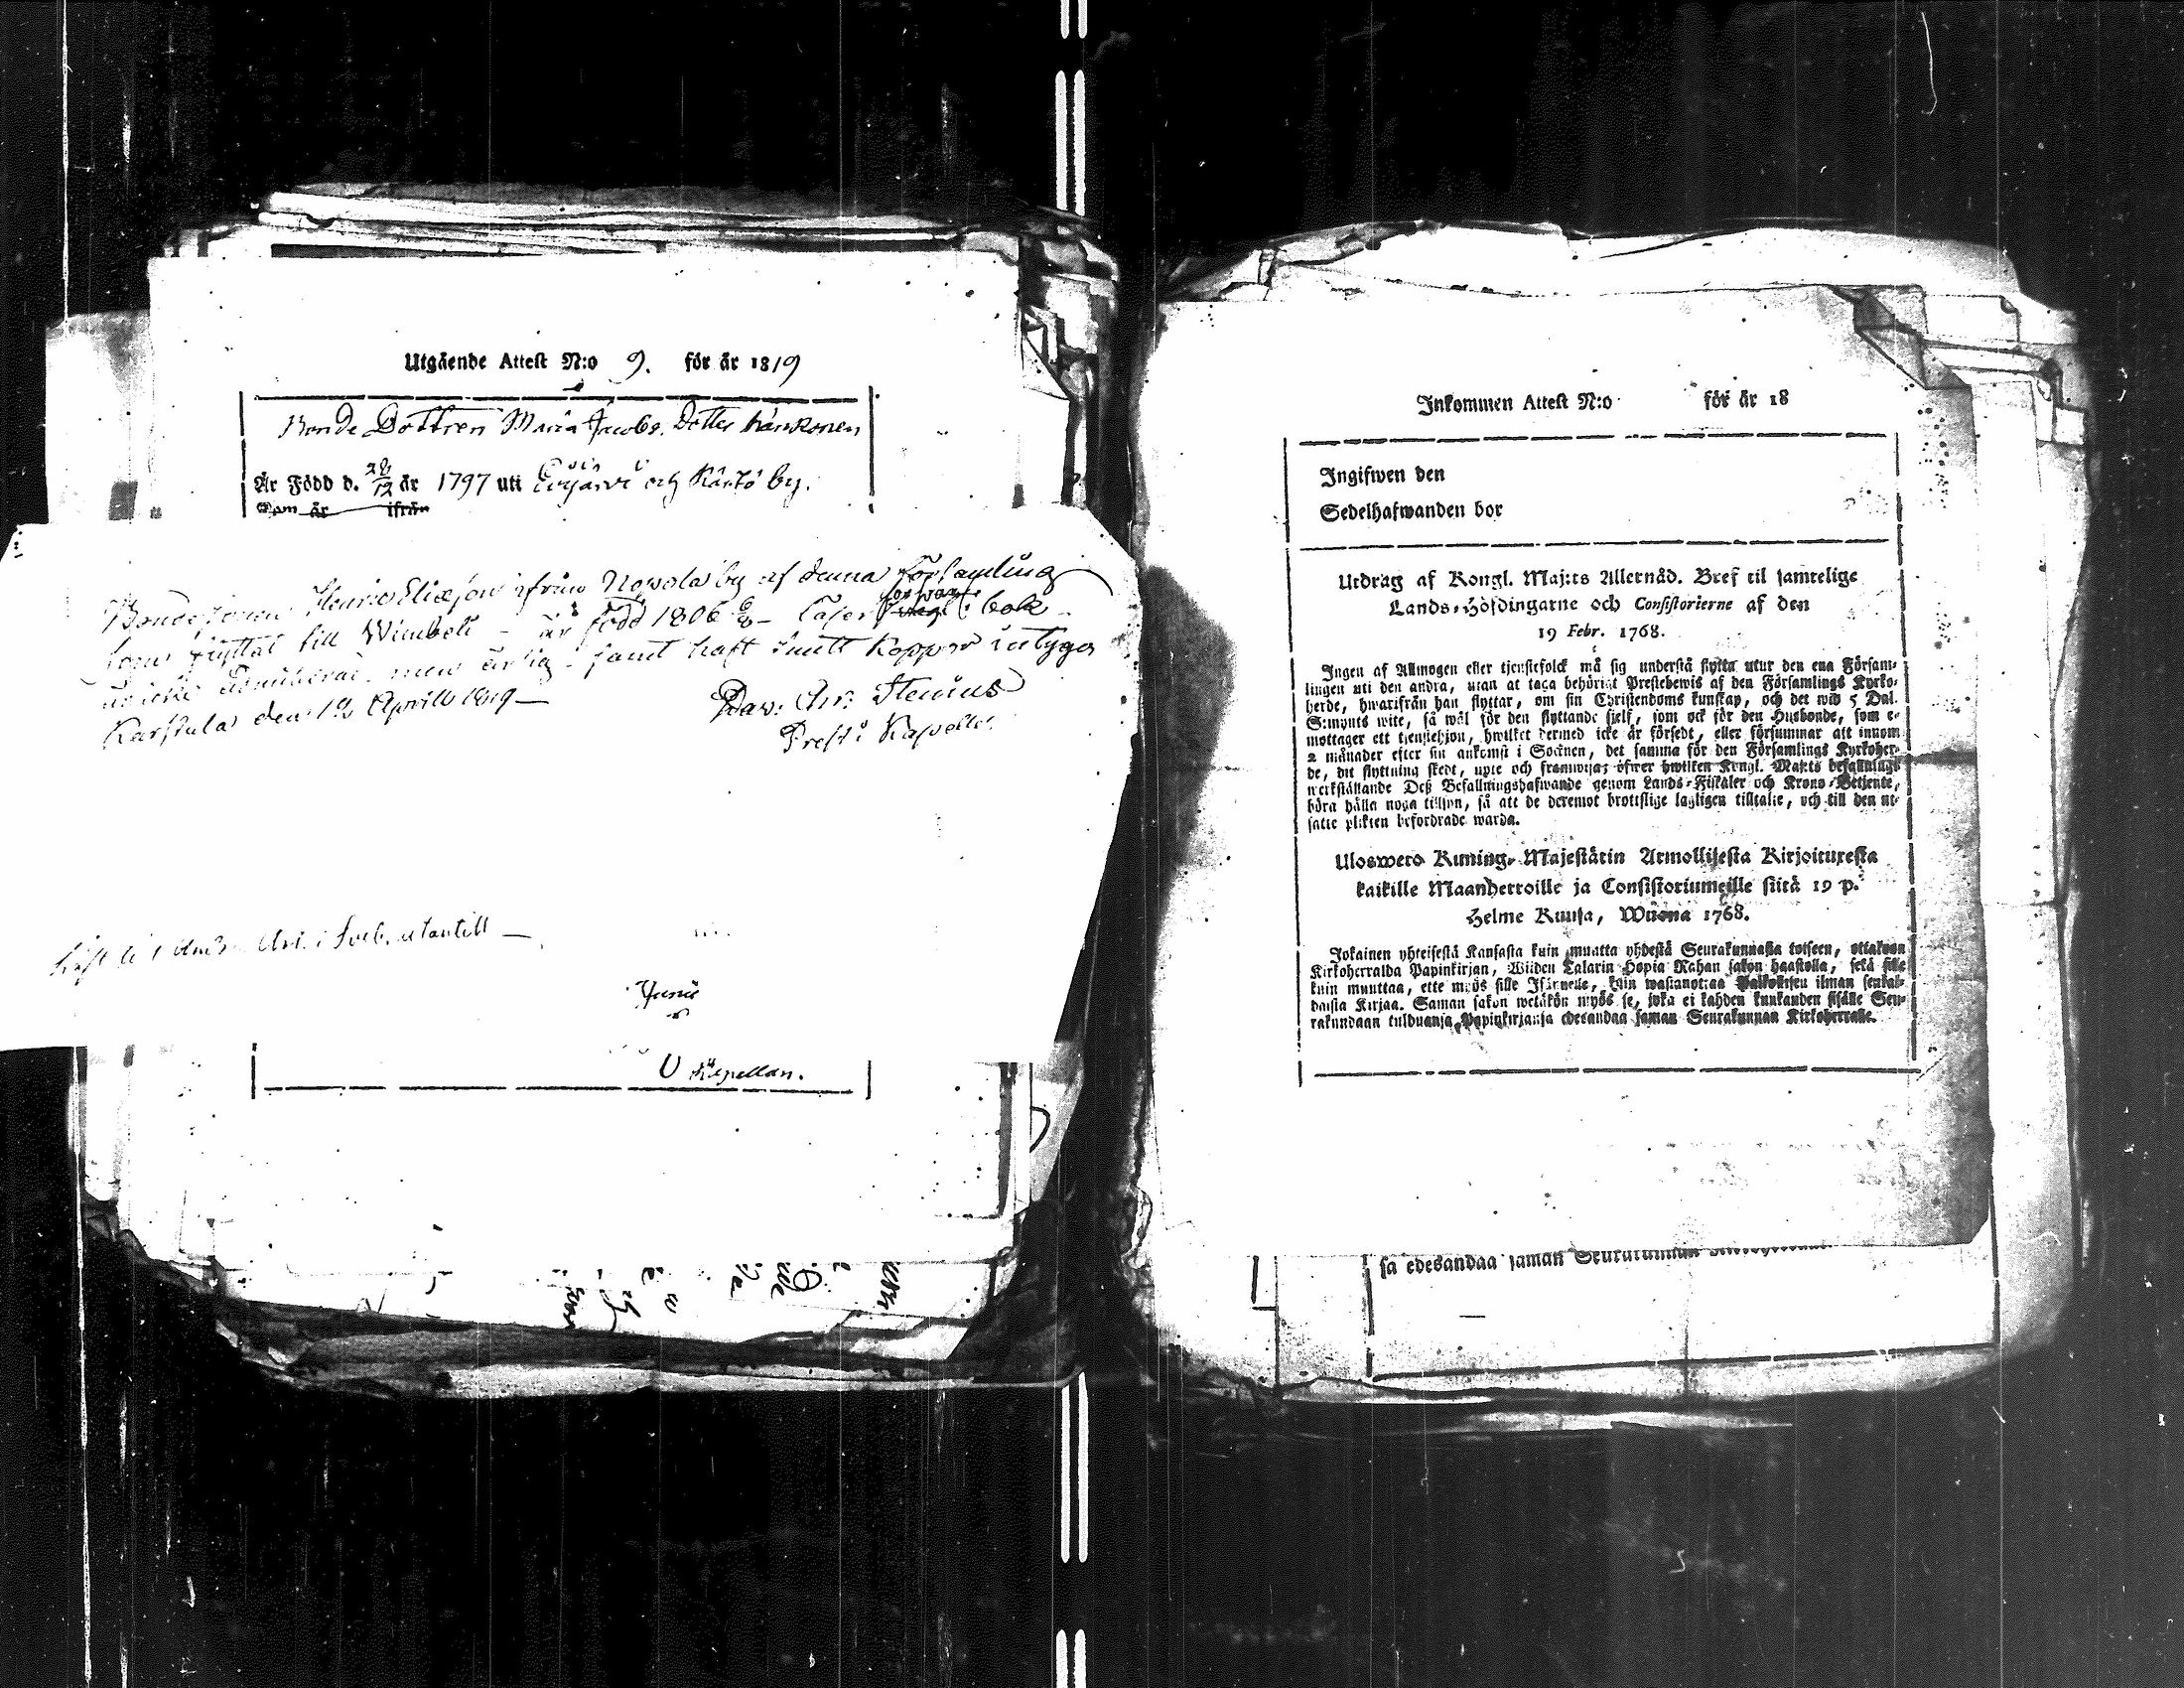 Utgående Attest N:o 9. för år 1819
Bonde Dottren Maria Jacobs Dotter
Är Född d. 28/12 år 1797 uti Evijärvi och by.
Som är ifrån
Bondesonen Henric Eliæson ifrån by af denna församling
som flyttat till Wimbeli - är född 1806 - Läser försvarl. i bok
är icke admitterad, men ärlig - samt haft Koppor intygar
Karstula den Aprill 1819 -
Dav. Chr. Stenius
Prest i Kapellet.
utantill -
Junii
Kapellan.
Inkommen Attest N:o för år 18
Ingifwen den
Sedelhafwanden bor
Utdrag af Kongl. Maj:ts Allernåd. Bref til samtelige
Lands-Höfdingarne och Consistorierne af den
19 Febr. 1768.
Ingen af Allmogen eller tjenstefolck må sig understå flytta utur den ena Försam-
lingen uti den andra, utan at taga behörigt Prestebewis af den Församlings Kyrko-
herde, hwarifrån han flyttar, om sin Christendoms kunskap, och det wid 5 Dal.
S:mynts wite, så wäl för den flyttande sjelf, som ock för den Husbonde, som e-
mottager ett tjenstehjon, hwilket dermed icke är försedt, eller försummar att innom
2 månader efter sin ankomst i Socknen, det samma för den Församlings Kyrkoher-
de, dit flyttning skedt, upte och framwisa; öfwer hwilken Kongl. Maj:ts befallnings
werkställande Deß Befallningshafwande genom Lands-Fiskaler och Krono-Betjente,
böra hålla noga tillsyn, så att de deremot brottslige lagligen tilltalte, och till den ut-
satte plikten befordrade warda.
Ulosweto Kuning. Majestätin Armollisesta Kirjoituxesta
kaikille Maanherroille ja Consistoriumeille siitä 19 p.
Helme Kuusa, Wuona 1768.
Jokainen yhteisestä Kansasta kuin muutta yhdestä Seurakunnasta toiseen, ottakoon
Kirkoherralda Papinkirjan, Wiiden Talarin Hopia Rahan sakon haastolla, sekä sille
kuin muuttaa, ette myös sille Isännelle, kuin wastanottaa Palkollisen ilman senkal-
daista Kirjaa. Saman sakon wetäkön myös se, joka ei kahden kuukauden sisälle Seu-
rakundaan tulduansa Papinkirjansa edesandaa saman Seurakunnan Kirkoherralle.
sa edesandaa saman Seurakunnan